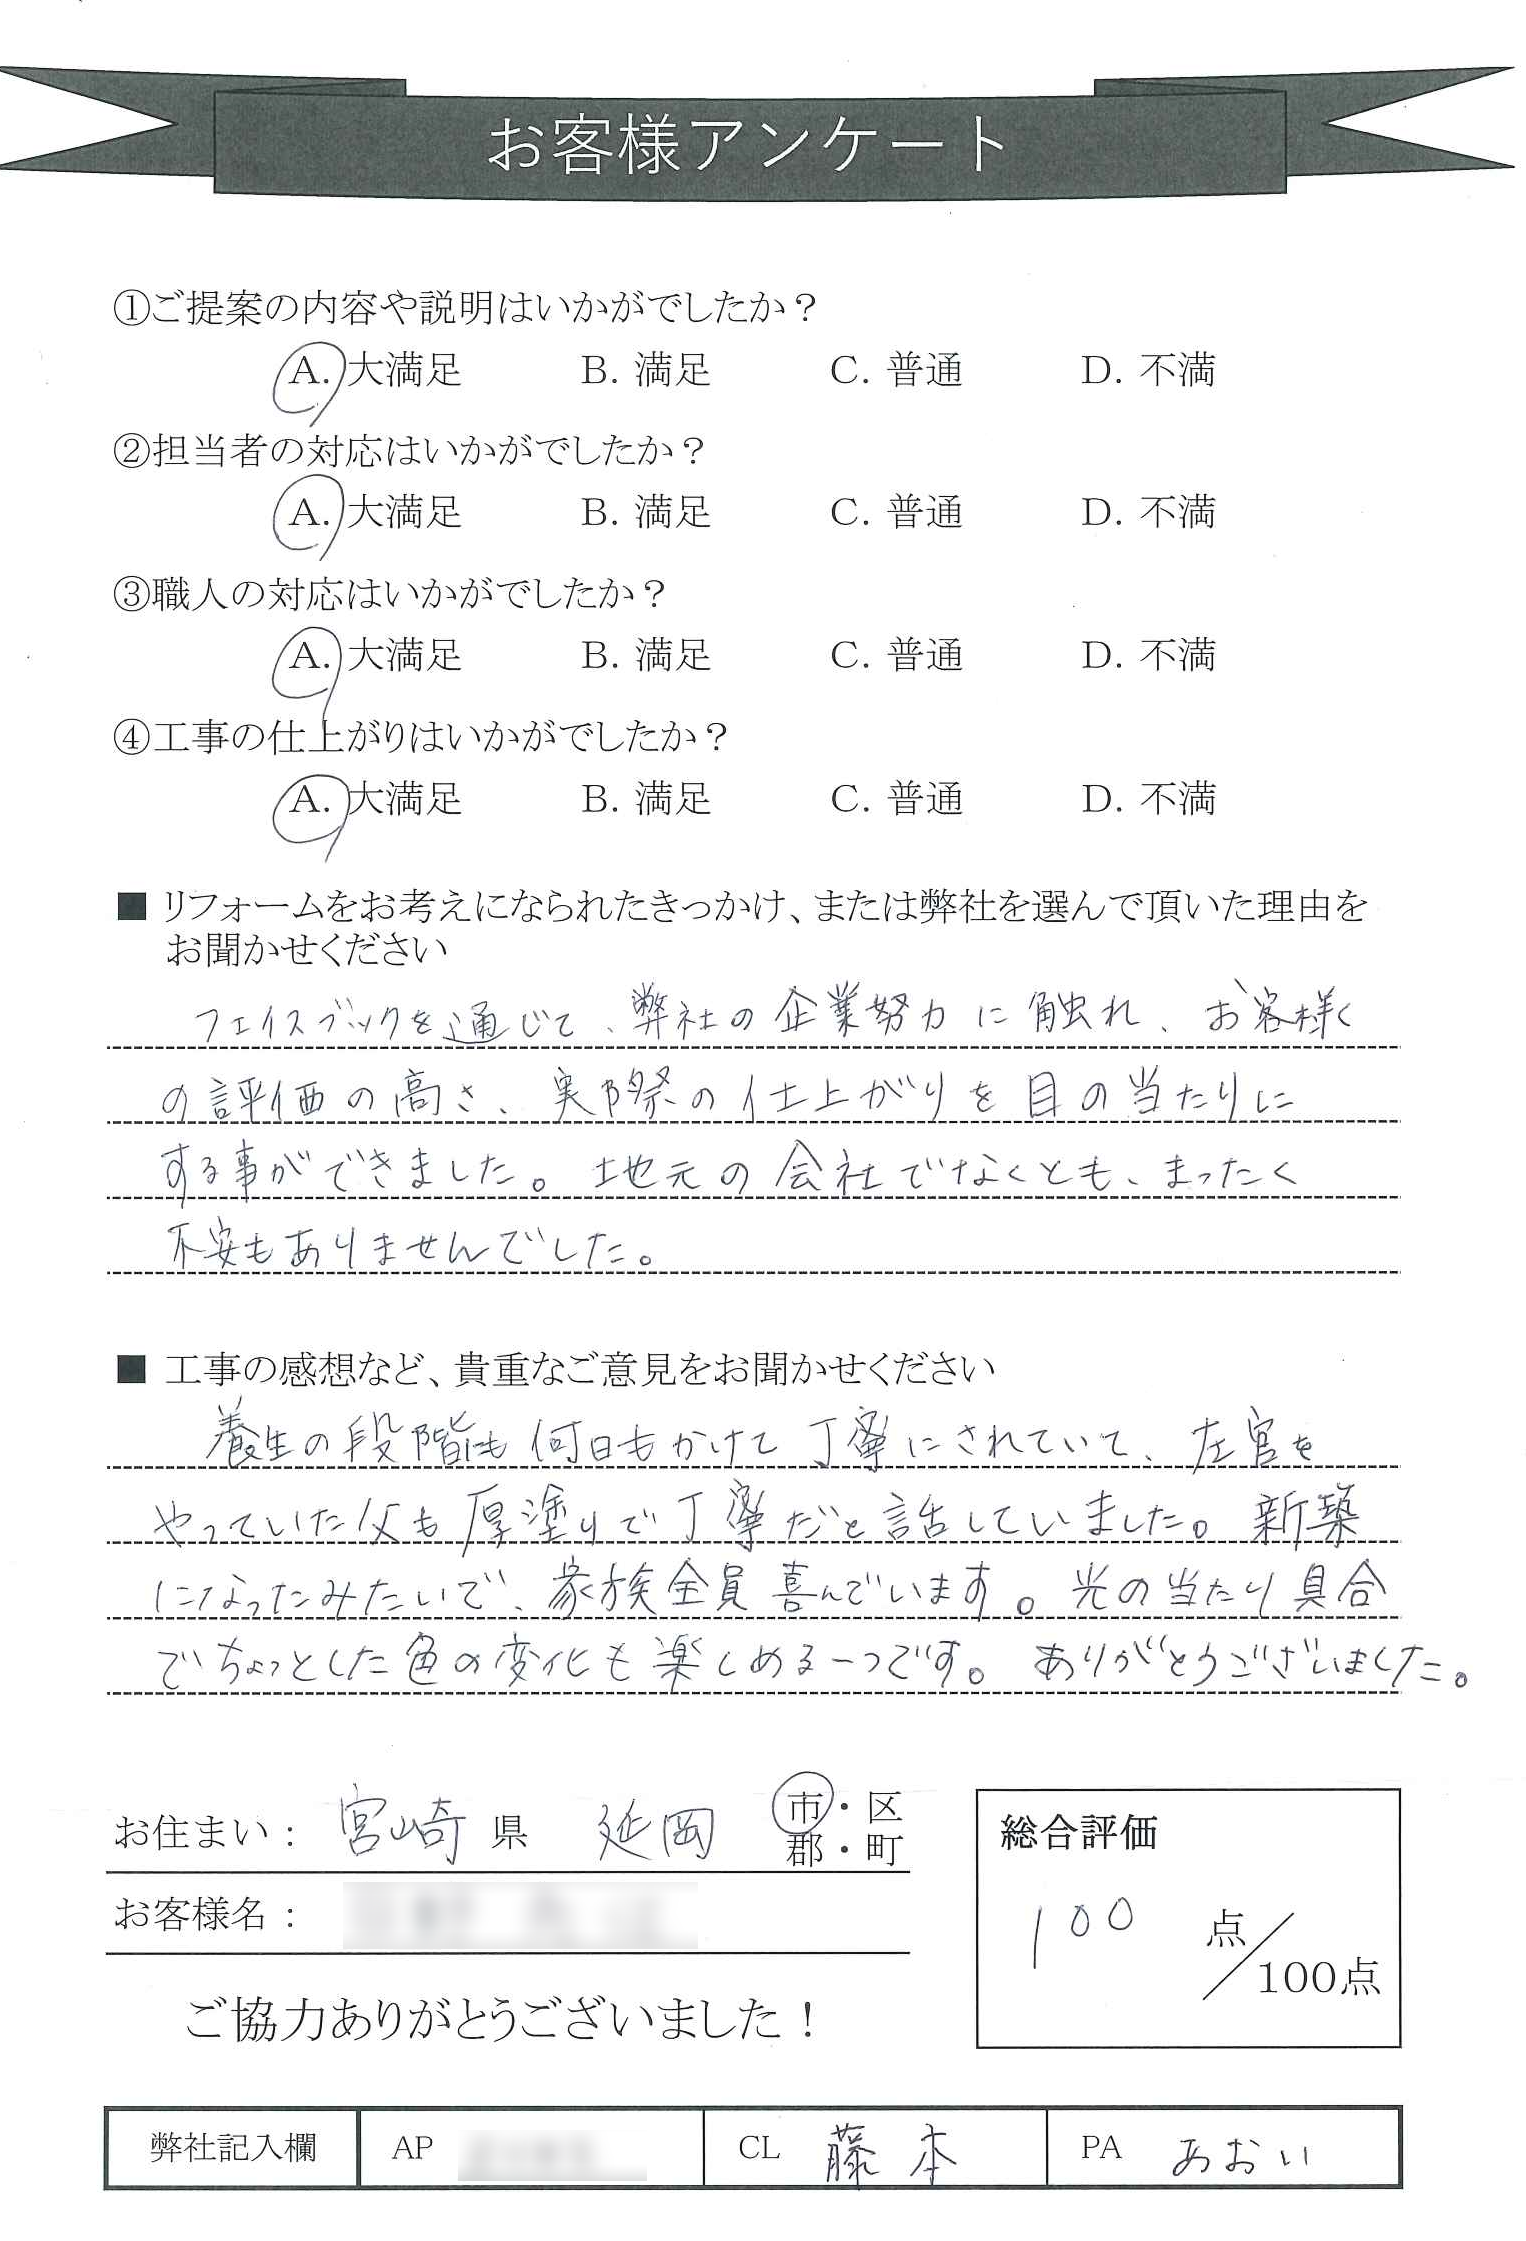 お客様アンケート
①ご提案の内容や説明はいかがでしたか？
A. 大満足 B. 満足 C. 普通 D. 不満
②担当者の対応はいかがでしたか？
A. 大満足 B. 満足 C. 普通 D. 不満
③職人の対応はいかがでしたか？
A. 大満足 B. 満足 C. 普通 D. 不満
④工事の仕上がりはいかがでしたか？
A. 大満足 B. 満足 C. 普通 D. 不満
■ リフォームをお考えになられたきっかけ、または弊社を選んで頂いた理由を
お聞かせください
フェイスブックを通じて、弊社の企業努力に触れ、お客様
の評価の高さ、実際の仕上がりを目の当たりに
する事ができました。地元の会社でなくとも、まったく
不安もありませんでした。
■ 工事の感想など、貴重なご意見をお聞かせください
養生の段階にも何日もかけて丁寧にされていて、左官を
やっていた父も厚塗りで丁寧だと話していました。新築
になったみたいで、家族全員喜んでいます。光の当たり具合
でちょっとした色の変化も楽しめる一つです。ありがとうございました。
お住まい： 宮崎 県 延岡 市・区
郡・町
お客様名：
総合評価
100 点／100点
ご協力ありがとうございました！
弊社記入欄 AP CL 藤本 PA あおい